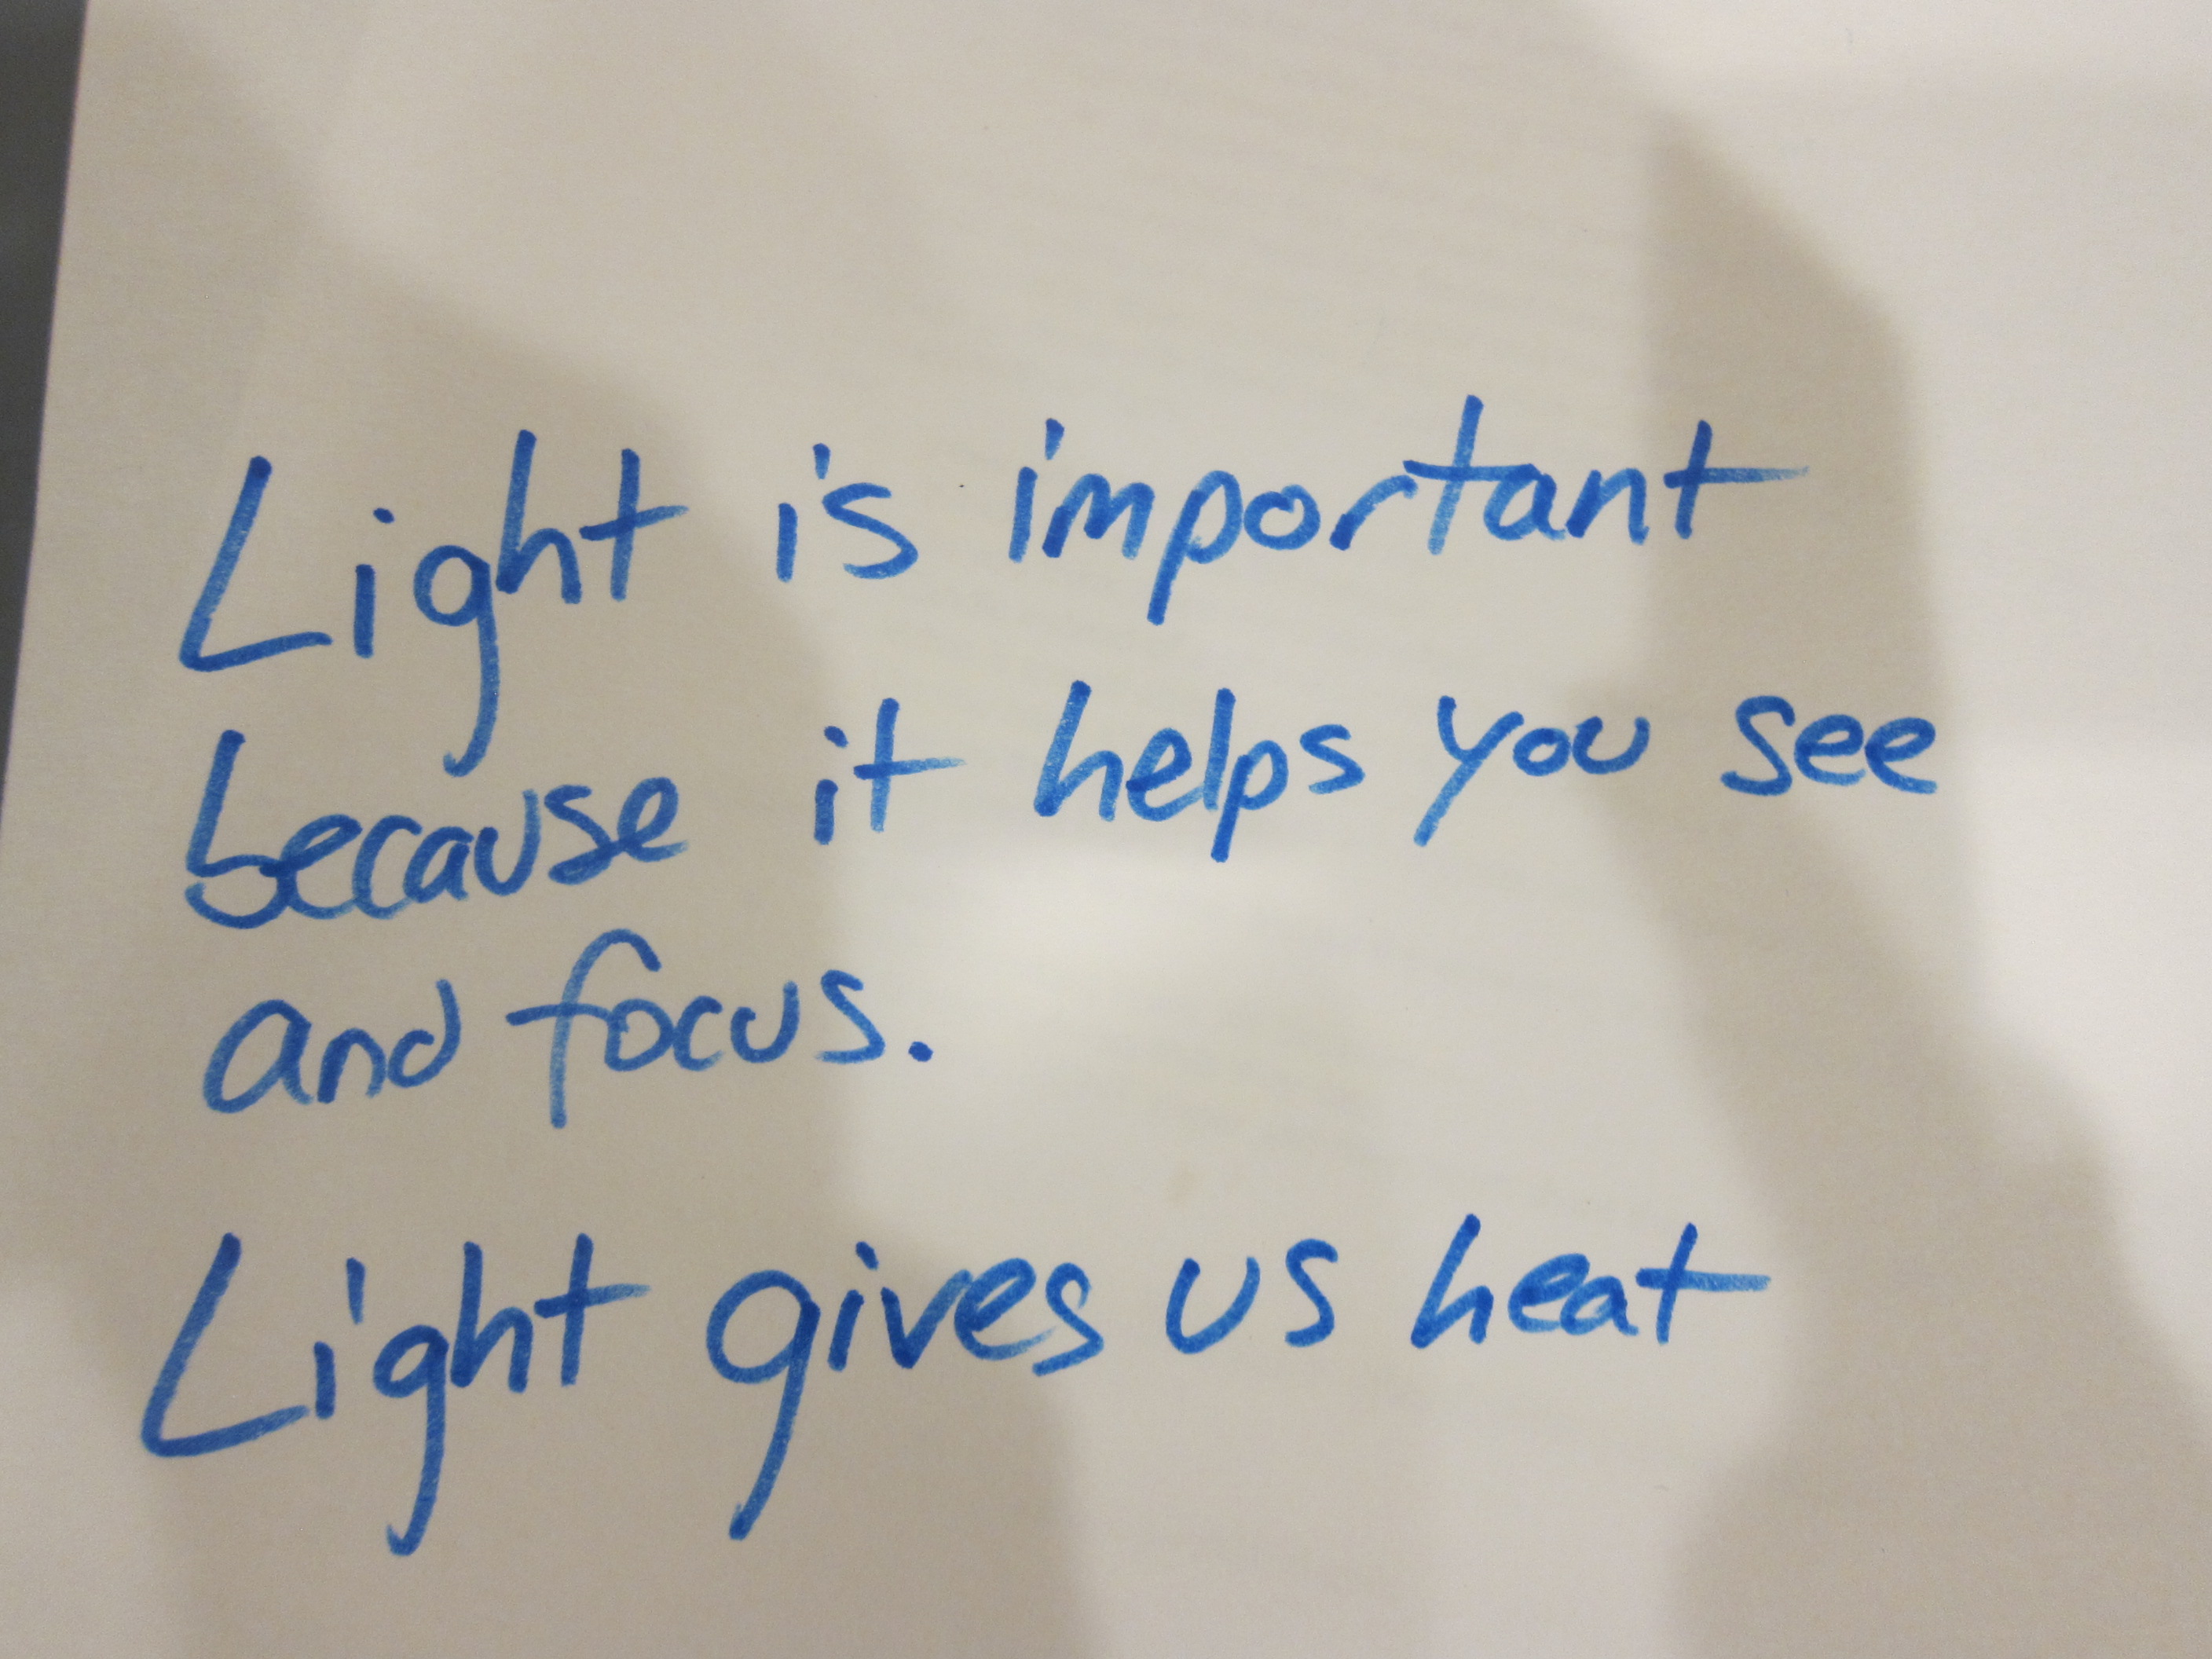 Light is important
because it helps you see
and focus.
Light gives us heat